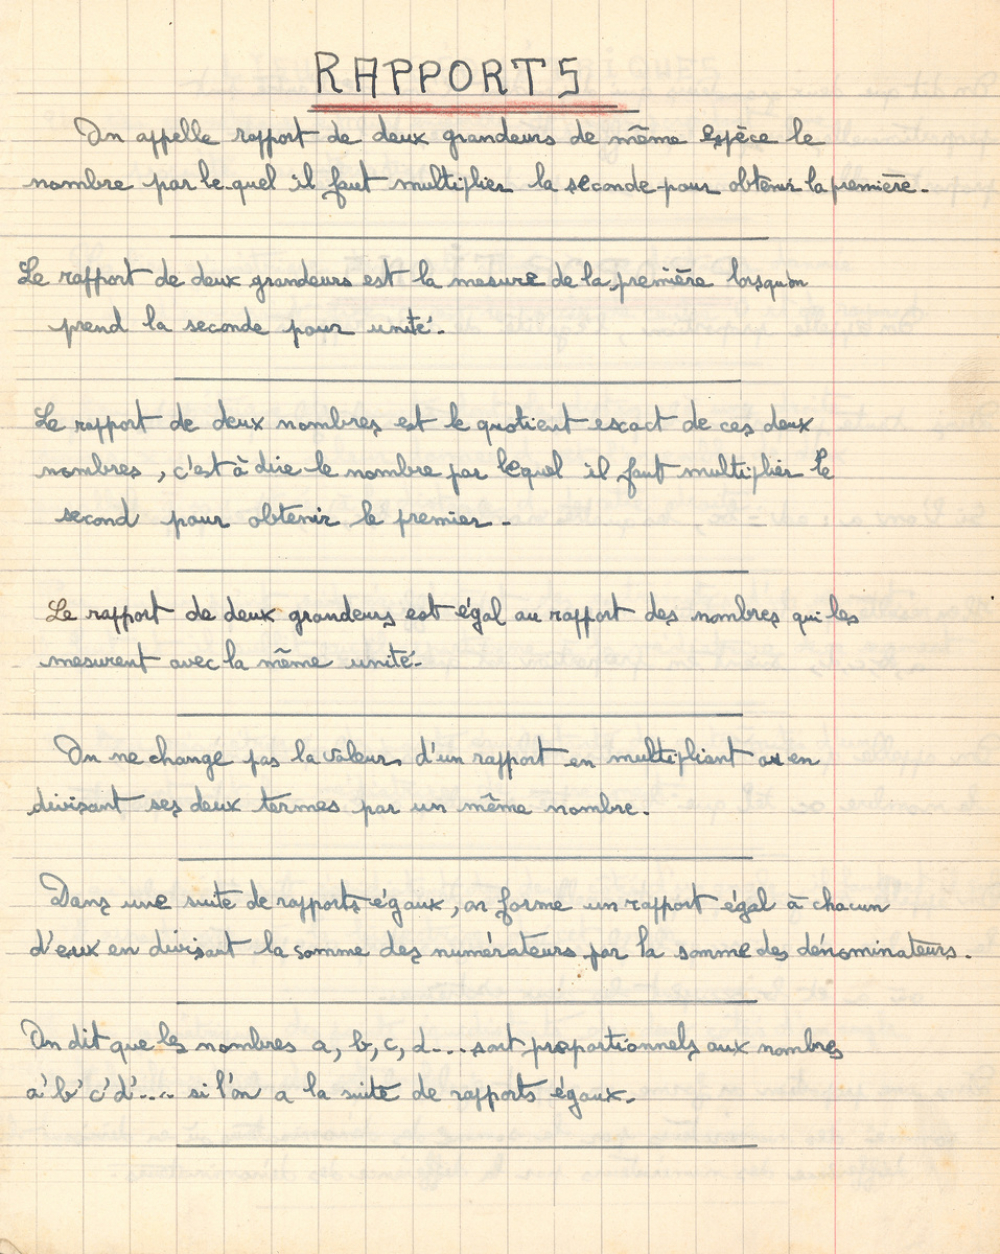 RAPPORTS
On appelle rapport de deux grandeurs de même espèce le
nombre par le quel il faut multiplier la seconde pour obtenir la première.
Le rapport de deux grandeurs est la mesure de la première lorsqu'on
prend la seconde pour unité.
Le rapport de deux nombres est le quotient exact de ces deux
nombres, c'est à dire le nombre par lequel il faut multiplier le
second pour obtenir le premier.
Le rapport de deux grandeurs est égal au rapport des nombres qui les
mesurent avec la même unité.
On ne change pas la valeur d'un rapport en multipliant ou en
divisant ses deux termes par un même nombre.
Dans une suite de rapports égaux, on forme un rapport égal à chacun
d'eux en divisant la somme des numérateurs par la somme des dénominateurs.
On dit que les nombres a, b, c, d... sont proportionnels aux nombres
a' b' c' d'.... si l'on a la suite de rapports égaux.